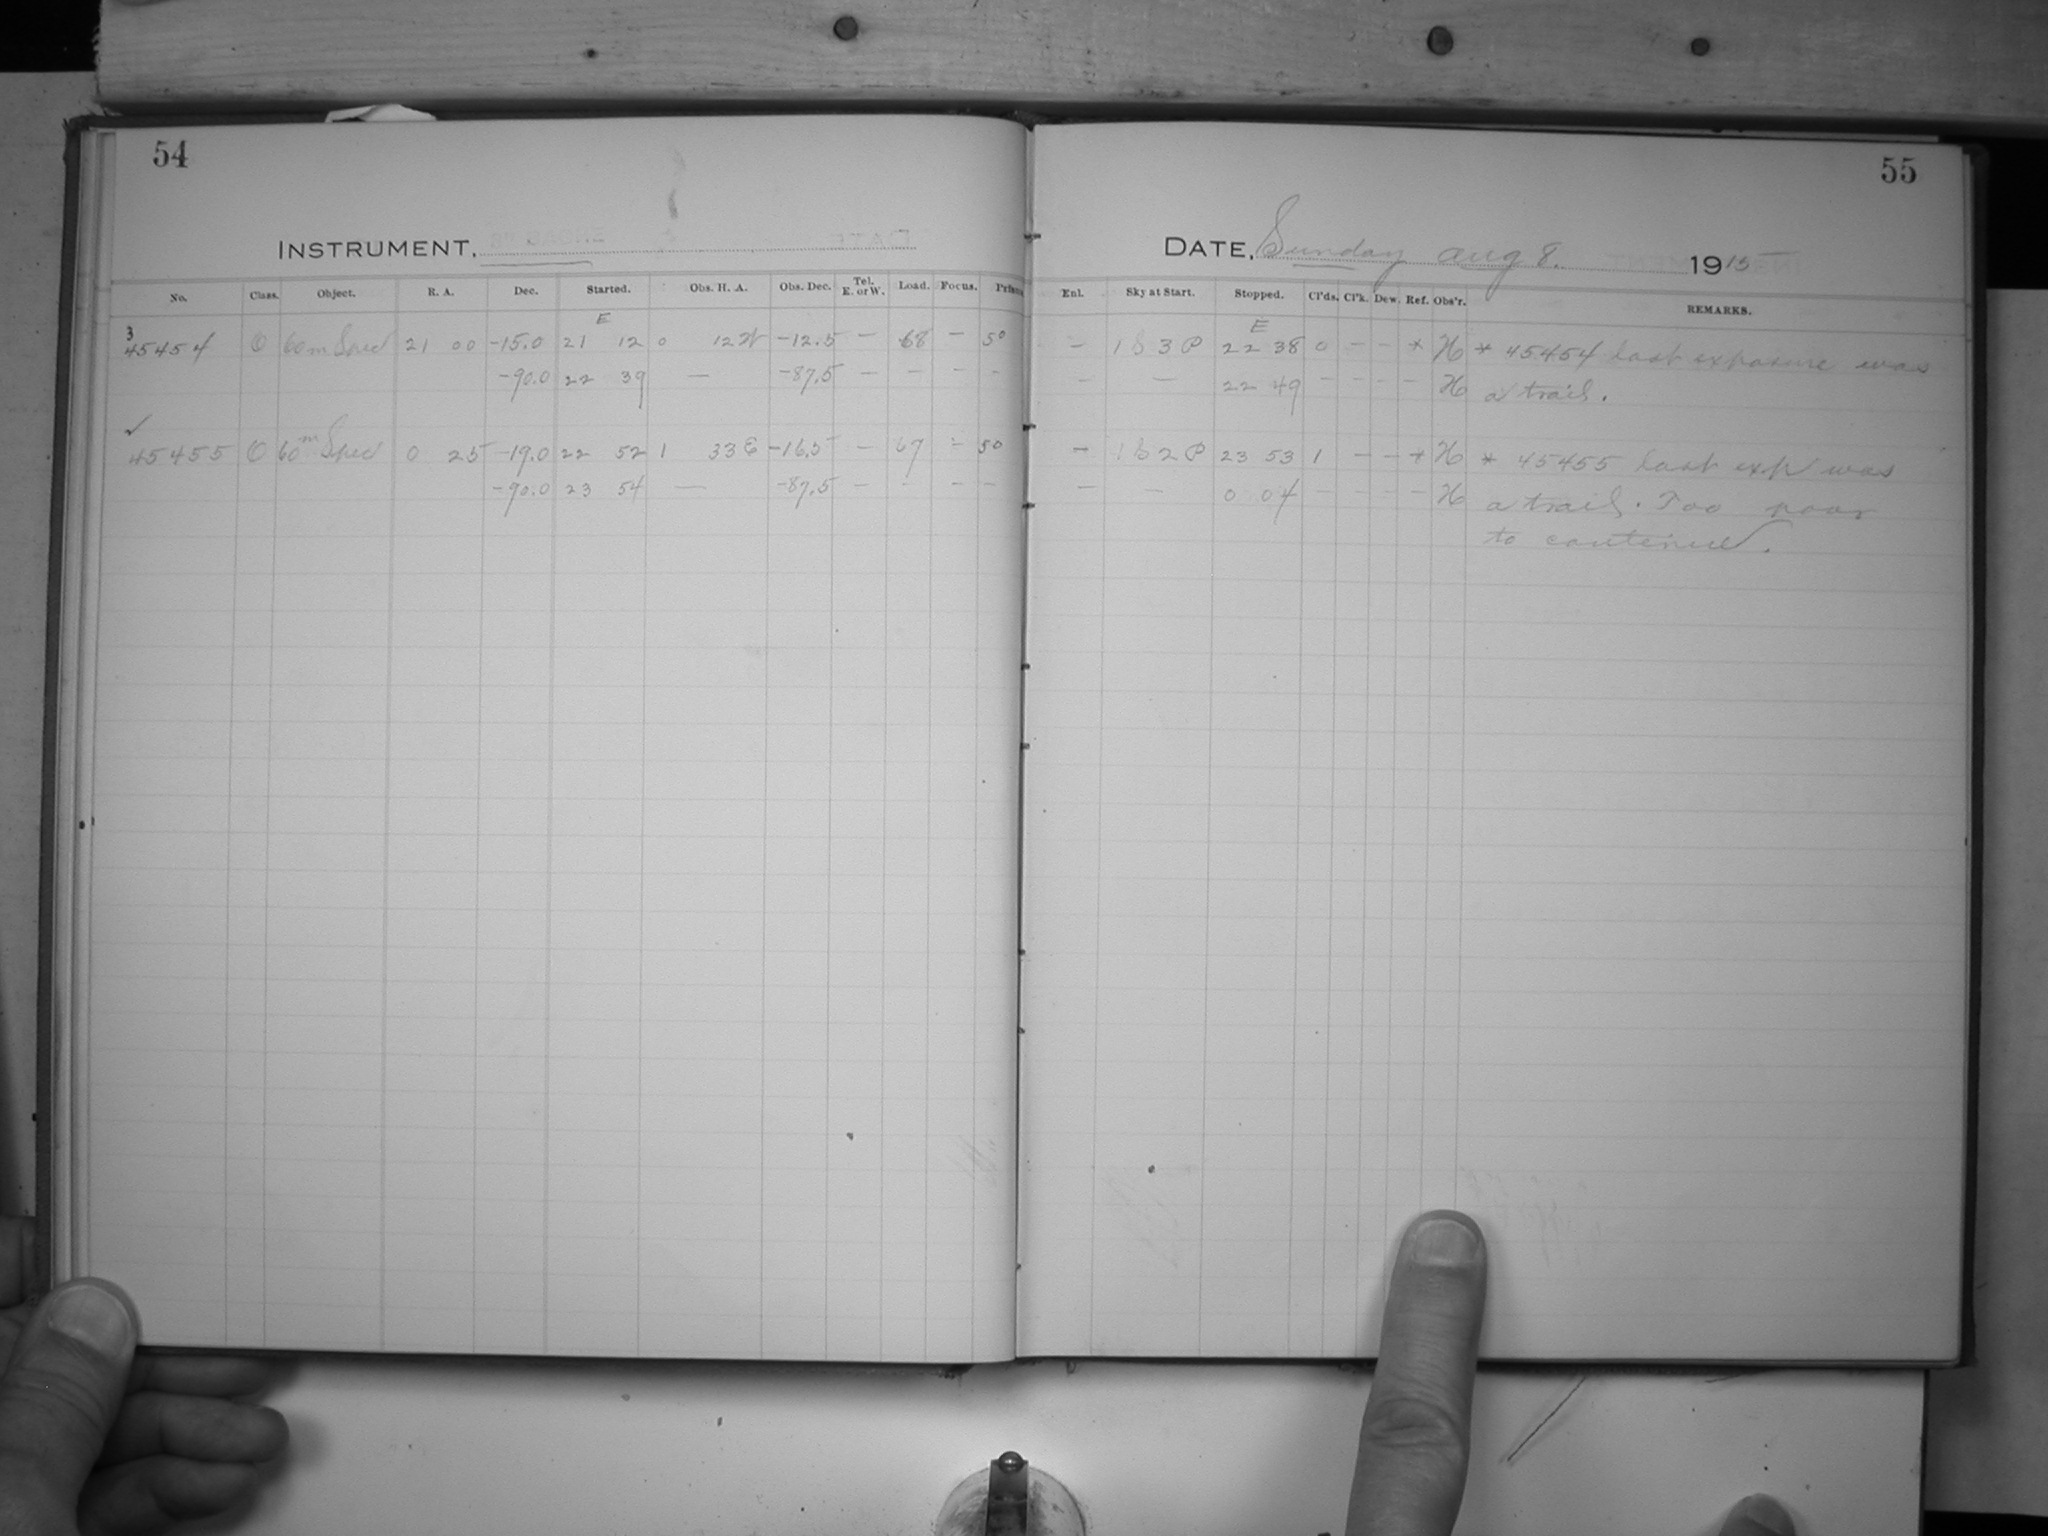 54
INSTRUMENT,
No. Class. Object. R. A. Dec. Started. Obs. H. A. Obs. Dec. Tel. E. or W. Load. Focus. Prism
E
3
45454 60m Spec 21 00 -15.0 21 12 0 12 W -12.5 — 68 — 50
-90.0 22 39 — -87.5 — — — —
✓
45455 60m Spec 0 25 -19.0 22 52 1 33 E -16.5 — 67 — 50
-90.0 23 54 — -87.5 — — — —
55
DATE, Sunday Aug 8. 1915
Enl. Sky at Start. Stopped. Cl'ds. Cl'k. Dew. Ref. Obs'r. REMARKS.
E
— 1 3 P 22 38 0 — — * H * 45454 last exposure was
— — 22 49 — — — — H a trail.
— 1 2 P 23 53 1 — — * H * 45455 last exp was
— — 0 04 — — — — H a trail. Too poor
to continue.